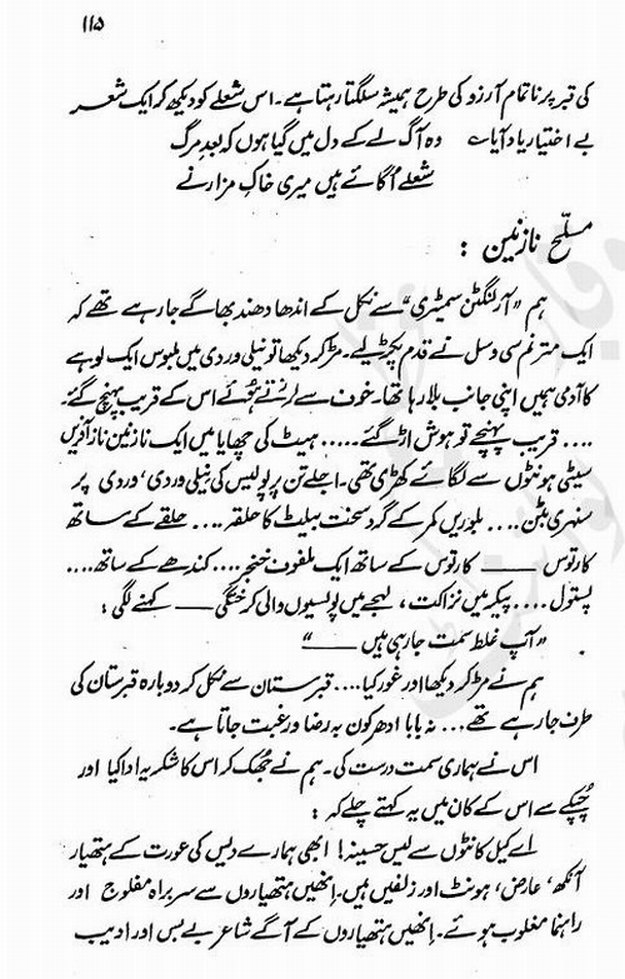 ۱۱۵
کی قبر پر ناتمام آرزو کی طرح ہمیشہ سلگتا رہتا ہے۔ اس شعلے کو دیکھ کر ایک شعر
بے اختیار یاد آیا ؎ وہ آگ لے کے دل میں گیا ہوں کہ بعدِ مرگ
شعلے اُگائے ہیں میری خاکِ مزار نے
مسلّح نازنین :
ہم "آرلنگٹن سمیٹری" سے نکل کے اندھا دھند بھاگے جا رہے تھے کہ
ایک مترنم سی وسل نے قدم پکڑ لیے۔ مڑ کر دیکھا تو نیلی وردی میں ملبوس ایک لوہے
کا آدمی ہمیں اپنی جانب بلا رہا تھا۔ خوف سے لرزتے ہوئے اس کے قریب پہنچ گئے۔
.... قریب پہنچے تو ہوش اڑ گئے ..... ہیٹ کی چھایا میں ایک نازنین ناز آفریں
سیٹی ہونٹوں سے لگائے کھڑی تھی۔ اجلے تن پر پولیس کی نیلی وردی، وردی پر
سنہری بٹن .... بلوریں کمر کے گرد سخت بیلٹ کا حلقہ .... حلقے کے ساتھ
کارتوس ــــــ کارتوس کے ساتھ ایک ملفوف خنجر .... کندھے کے ساتھ ....
پستول .... پیکر میں نزاکت، لہجے میں پولسیوں والی کرختگی ــــــ کہنے لگی :
"آپ غلط سمت جا رہی ہیں ــــــ"
ہم نے مڑ کر دیکھا اور غور کیا .... قبرستان سے نکل کر دوبارہ قبرستان کی
طرف جا رہے تھے ... نہ بابا ادھر کون بہ رضا و رغبت جاتا ہے۔
اس نے ہماری سمت درست کی۔ ہم نے جھک کر اس کا شکریہ ادا کیا اور
چُپکے سے اس کے کان میں یہ کہتے چلے کہ :
اے کیل کانٹوں سے لیس حسینہ! ابھی ہمارے دیس کی عورت کے ہتھیار
آنکھ، عارض، ہونٹ اور زلفیں ہیں۔ اِنھیں ہتھیاروں سے سربراہ مفلوج اور
راہنما مغلوب ہوئے۔ اِنھیں ہتھیاروں کے آگے شاعر بے بس اور ادیب